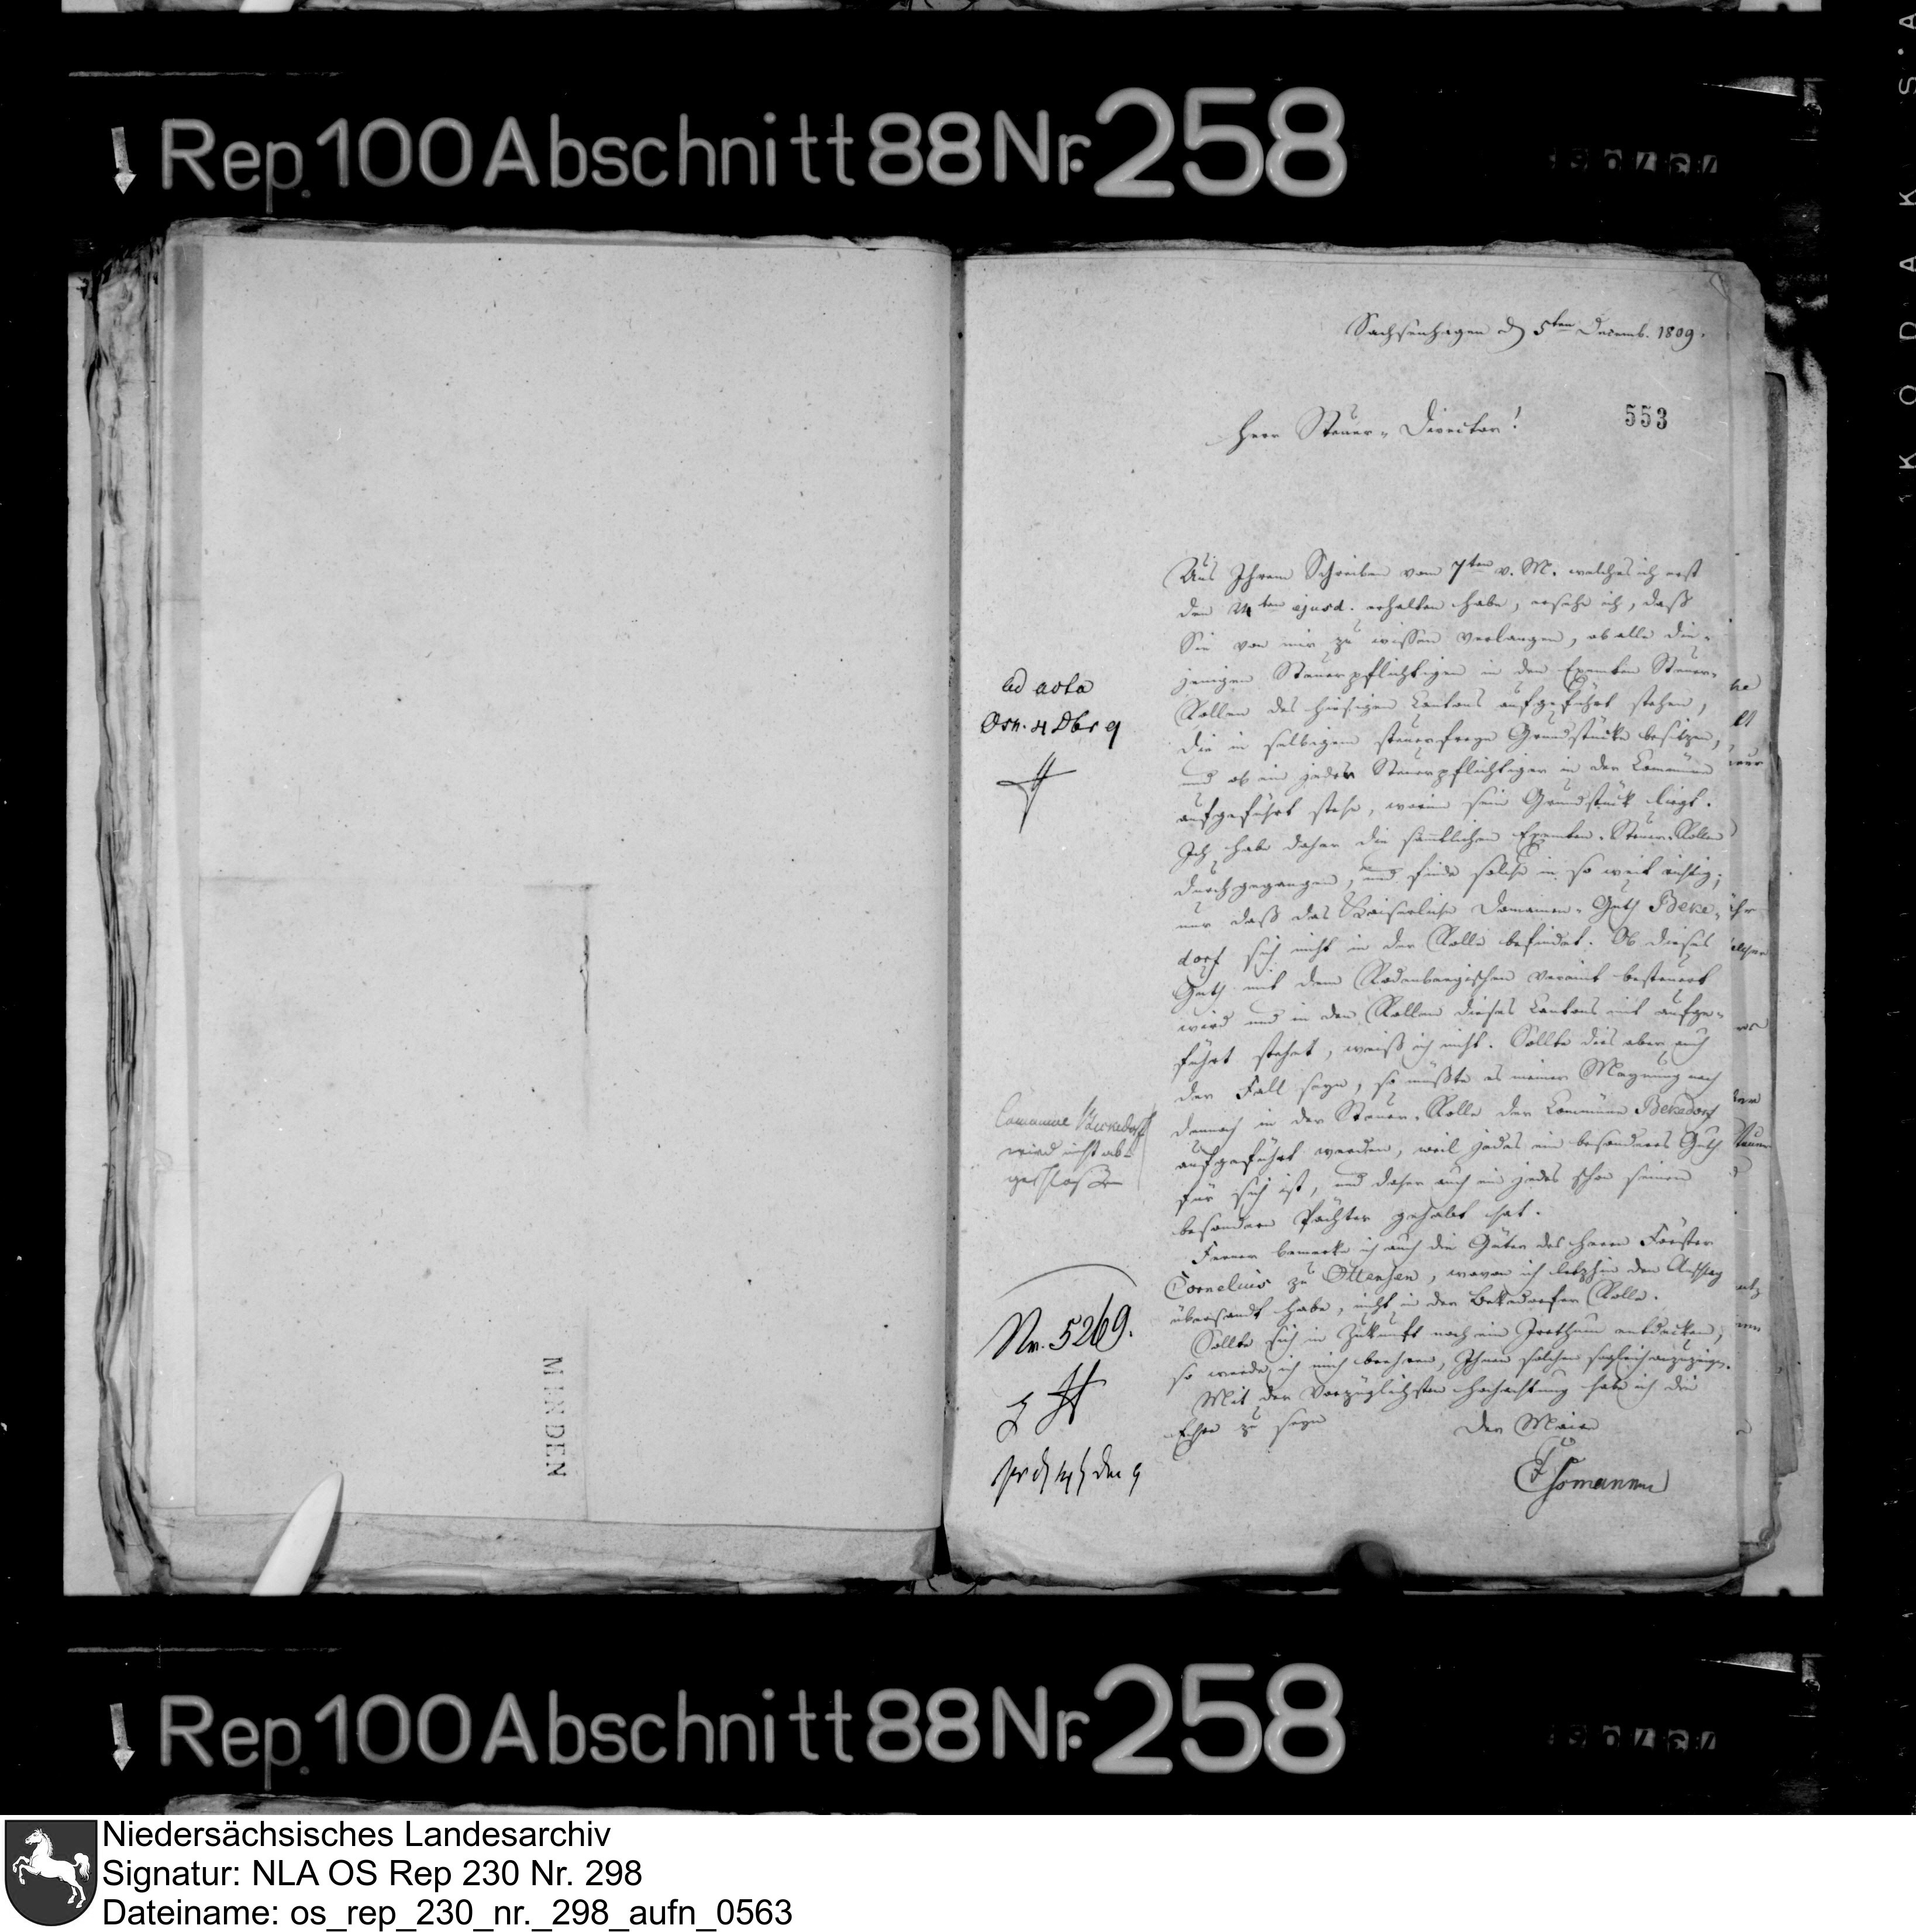 Rep. 100 Abschnitt 88 Nr. 258
Sachsenhagen d 5ten Decemb. 1809.
553
Herr Steuer-Director!
Aus Ihrem Schreiben vom 7ten v. M. welches ich erst
den ten ejusd. erhalten habe, ersehe ich, daß
Sie von mir zu wissen verlangen, ob alle die-
jenigen Steuerpflichtigen in den Exemten Steuer-
Rollen des hiesigen Cantons aufgeführt stehen,
die in selbigem steuerfreye Grundstücke besitzen,
und ob ein jeder Steuerpflichtiger in der Commüne
aufgeführt stehe, worin sein Grundstück liegt.
Ich habe daher die sämtlichen Exemten-Steuer-Rollen
durchgegangen, und finde solche in so weit richtig;
nur daß das Kaiserliche Domainen-Guth Beke-
dorf sich nicht in der Rolle befindet. Ob dieses
Guth mit dem Rodenbergischen vereint besteuert
wird und in den Rollen dieses Cantons mit aufge-
führt stehet, weiß ich nicht. Sollte dies aber auch
der Fall seyn, so müßte es meiner Meynung nach
dennoch in der Steuer-Rolle der Commüne Bekedorf
aufgeführt werden, weil jedes ein besonderes Guth
für sich ist, und daher auch ein jedes schon seinen
besondern Pächter gehabt hat.
Ferner bemerke ich auch die Güter des Herrn Förster
Cornelius zu Ottensen, wovon ich letzhin den
übersandt habe, nicht in der Bekedorfer Rolle.
Sollte sich in Zukunft noch ein Irrthum entdecken,
so werde ich mich beehren, Ihnen solchen sogleich anzuzeigen.
Mit der vorzüglichsten Hochachtung habe ich die
Ehre zu seyn
Der Maire
ad acta
Osn. 21 Dbr 9
Commune Beckedorf
wird nicht ab
geschloßen
Nr. 5269.
MINDEN
Rep. 100 Abschnitt 88 Nr. 258
KODAK S.A
Niedersächsisches Landesarchiv
Signatur: NLA OS Rep 230 Nr. 298
Dateiname: os_rep_230_nr._298_aufn_0563